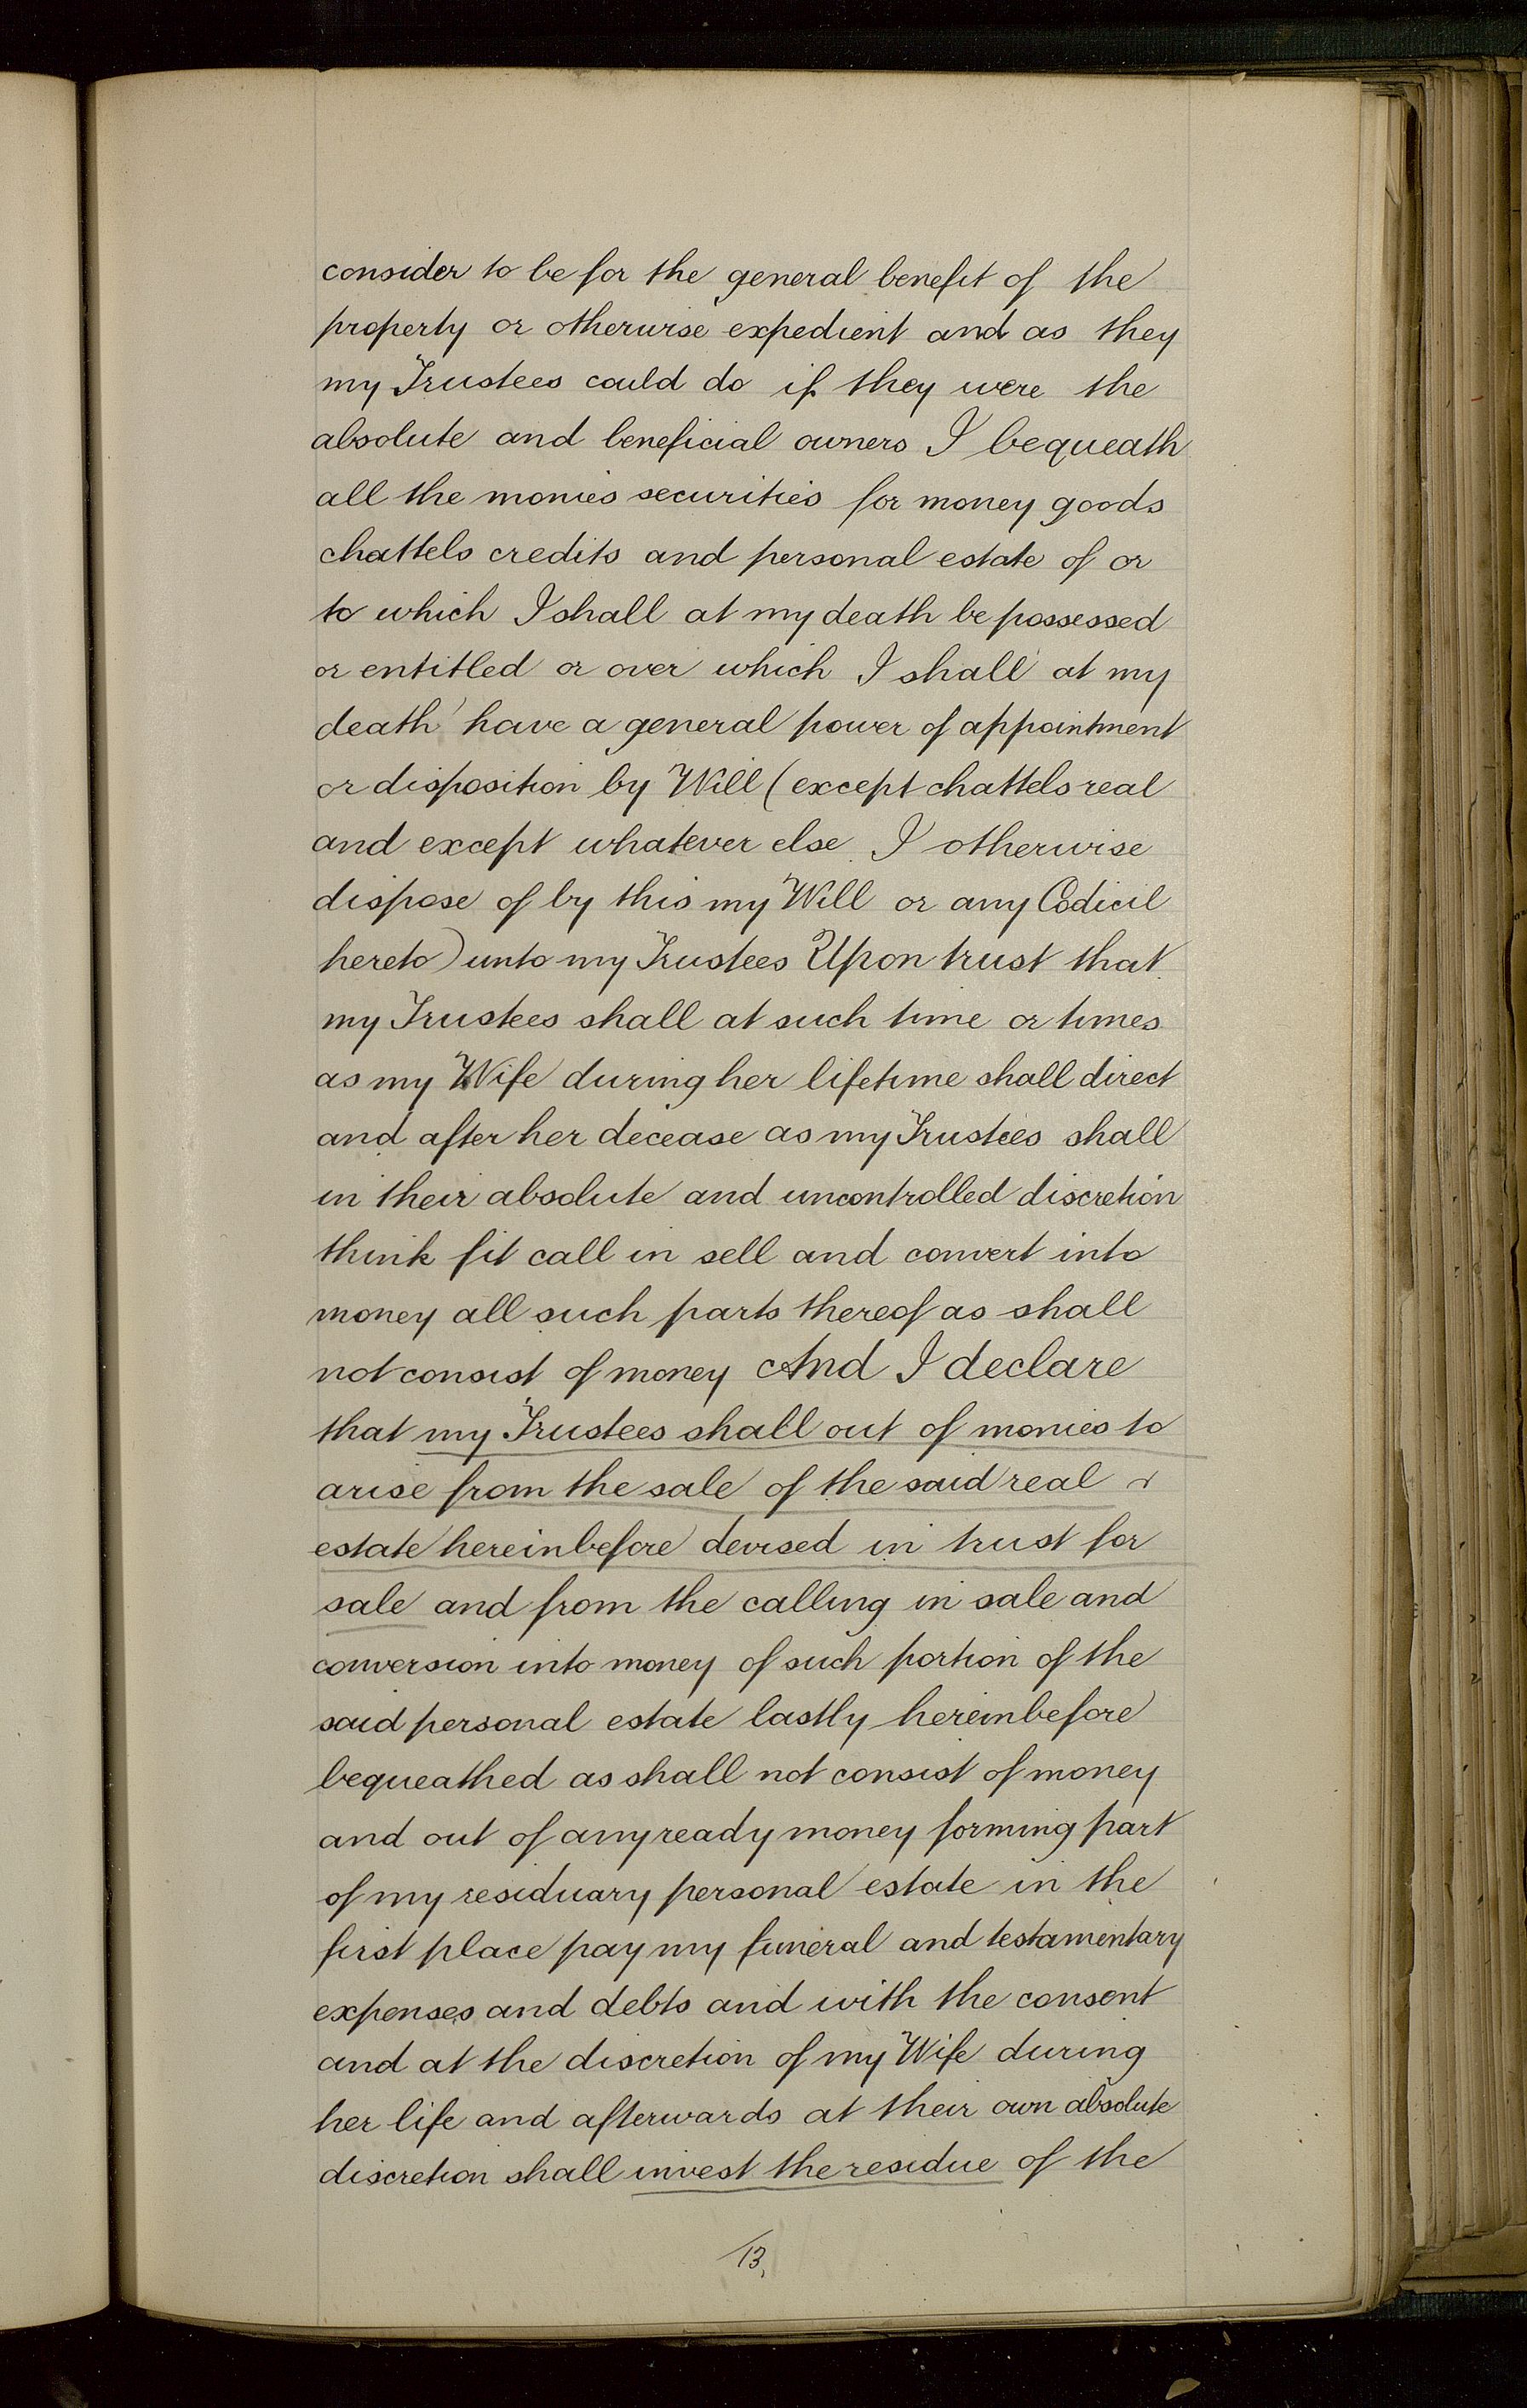 consider to be for the general benefit of the
property or otherwise expedient and as they
my Trustees could do if they were the
absolute and beneficial owners I bequeath
all the monies securities for money goods
chattels credits and personal estate of or
to which I shall at my death be possessed
or entitled or over which I shall at my
death have a general power of appointment
or disposition by Will (except chattels real
and except whatever else I otherwise
dispose of by this my Will or any Codicil
hereto) unto my Trustees Upon trust that
my Trustees shall at such time or times
as my Wife during her lifetime shall direct
and after her decease as my Trustees shall
in their absolute and uncontrolled discretion
think fit call in sell and convert into
money all such parts thereof as shall
not consist of money And I declare
that my Trustees shall out of monies to
arise from the sale of the said real
estate hereinbefore devised in trust for
sale and from the calling in sale and
conversion into money of such portion of the
said personal estate lastly hereinbefore
bequeathed as shall not consist of money
and out of any ready money forming part
of my residuary personal estate in the
first place pay my funeral and testamentary
expenses and debts and with the consent
and at the discretion of my Wife during
her life and afterwards at their own absolute
discretion shall invest the residue of the
13